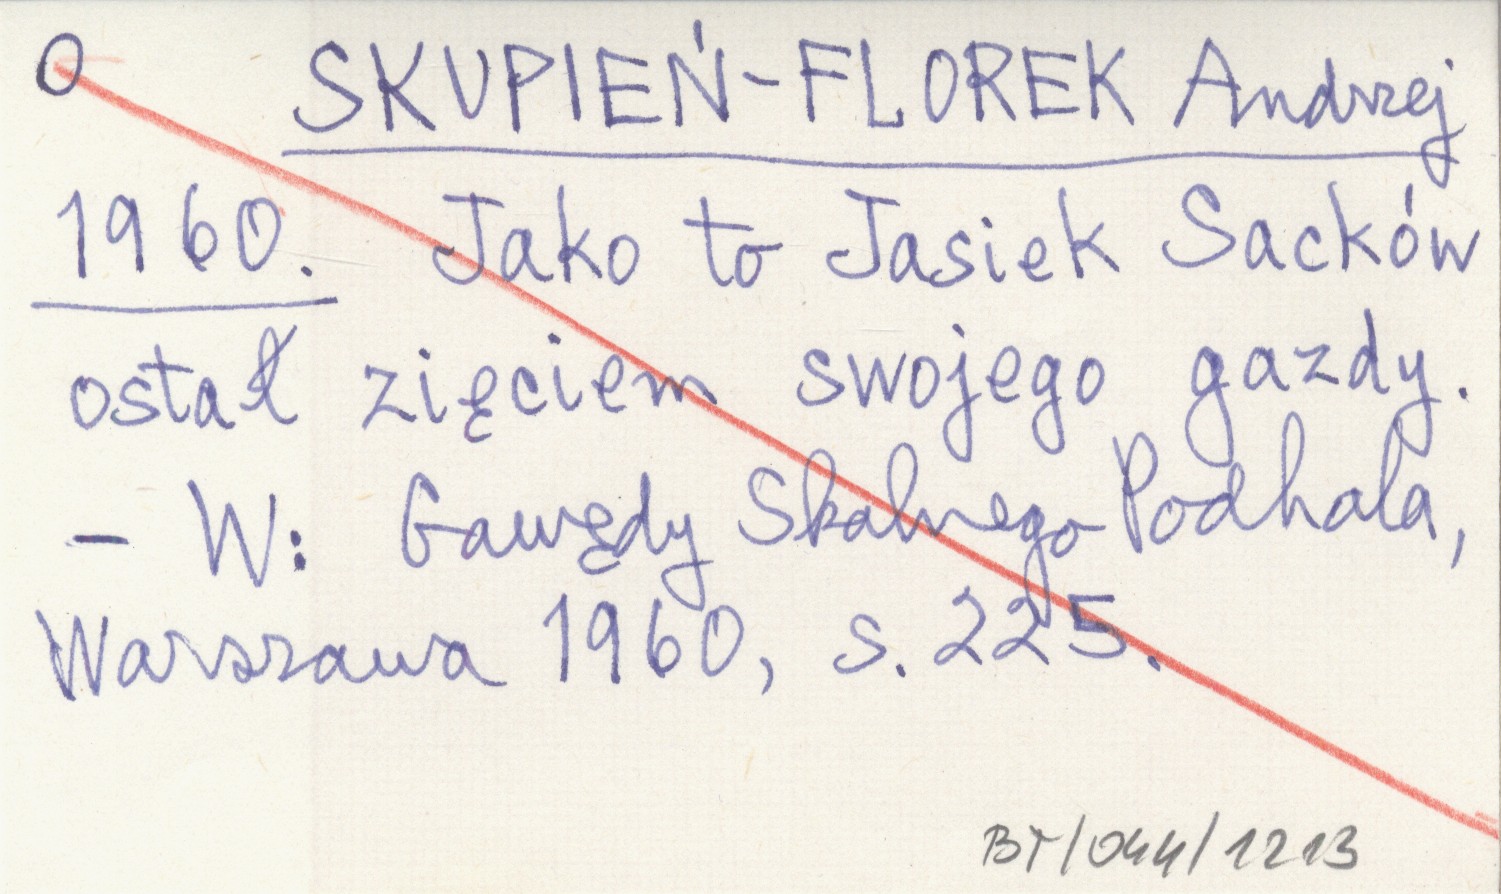 O SKUPIEŃ-FLOREK Andrzej
1960. Jako to Jasiek Sacków
ostał zięciem swojego gazdy.
- W: Gawędy Skalnego Podhala,
Warszawa 1960, s. 225.
BT/044/1213